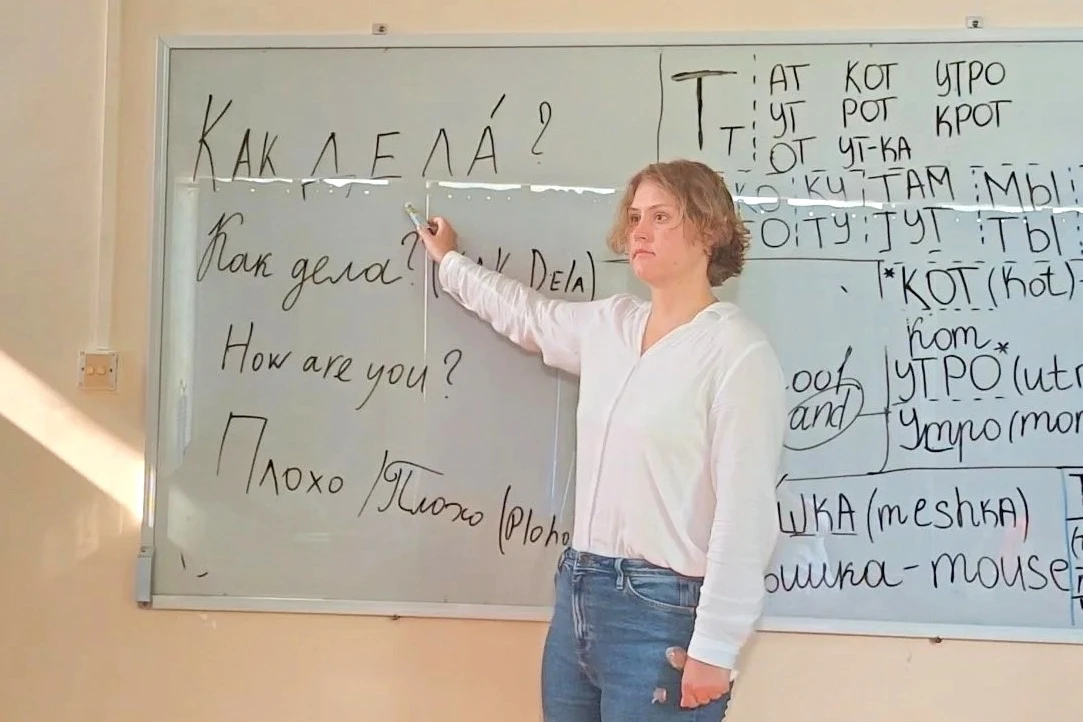 КАК ДЕЛА́?
Как дела? (KAK DElA)
How are you?
Плохо / Плохо (Ploho
Т т
АТ КОТ УТРО
УТ РОТ КРОТ
ОТ УТ-КА
КО КУ ТАМ МЫ
ТО ТУ ТУТ ТЫ
*КОТ (Kot)
Кот
*УТРО (utr
Утро (mor
and
ШКА (meshkA)
ышка - mouse